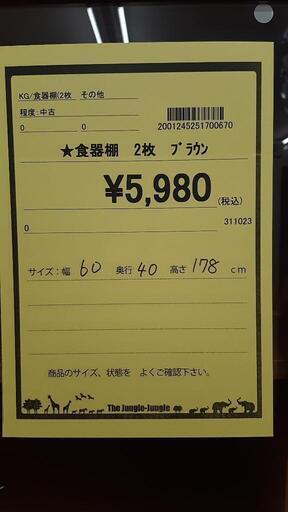 KG/食器棚(2枚 その他
程度:中古
0 0 2001245251700670
★食器棚 2枚 ﾌﾞﾗｳﾝ
¥5,980(税込)
0 311023
サイズ:幅 60 奥行 40 高さ 178 cm
商品のサイズ、状態を よくご確認下さい。
The Jungle-Jungle